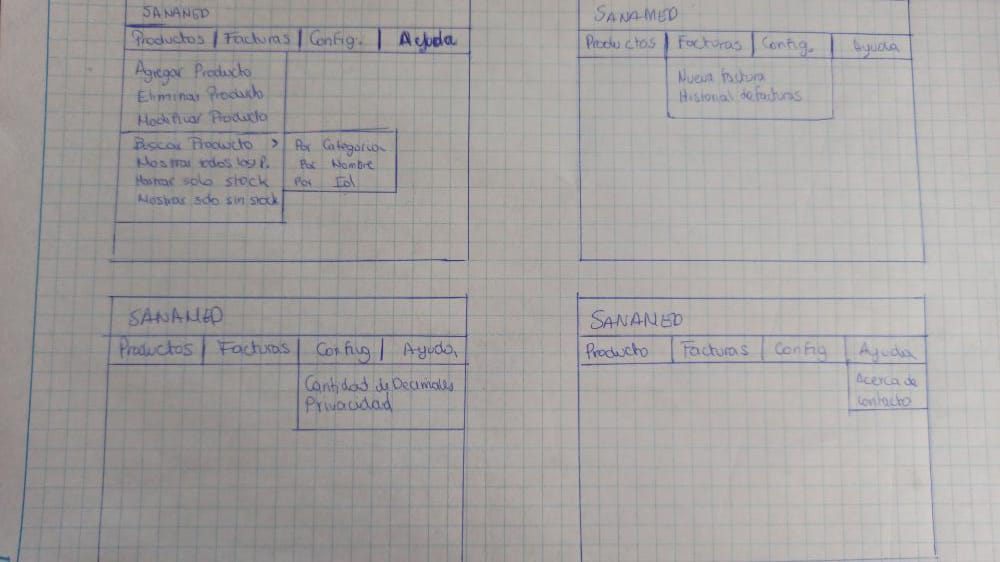 SANAMED
Productos | Facturas | Config. | Ayuda
Agregar Producto
Eliminar Producto
Modificar Producto
Buscar Producto >
Mostrar todos los P.
Mostrar solo stock
Mostrar solo sin stock
Por Categoria
Por Nombre
Por Id
SANAMED
Productos | Facturas | Config. | Ayuda
Nueva factura
Historial de facturas
SANAMED
Productos | Facturas | Config | Ayuda
Cantidad de Decimales
Privacidad
SANAMED
Producto | Facturas | Config | Ayuda
Acerca de
contacto